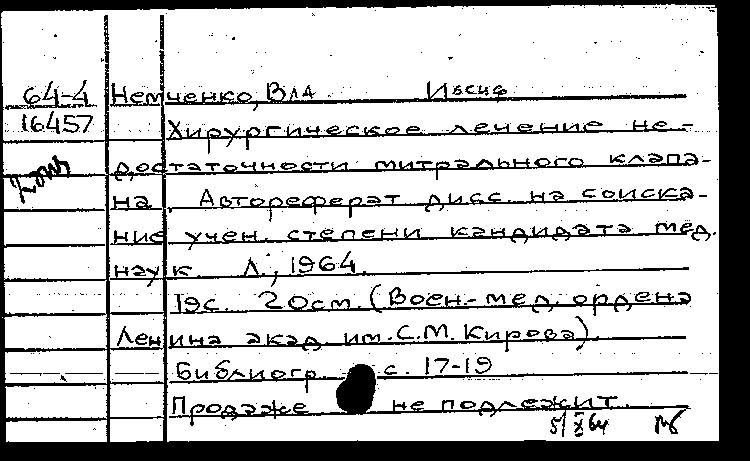 64-4 Немченко, Влд Иосиф
16457 Хирургическое лечение не-
достаточности митрального клапа-
на. Автореферат дисс. на соиска-
ние учен. степени кандидата мед.
наук. Л., 1964.
19с. 20см. (Воен.-мед. ордена
Ленина акад. им. С.М. Кирова)
Библиогр. с. 17-19
Продаже не подлежит.
5/X 64